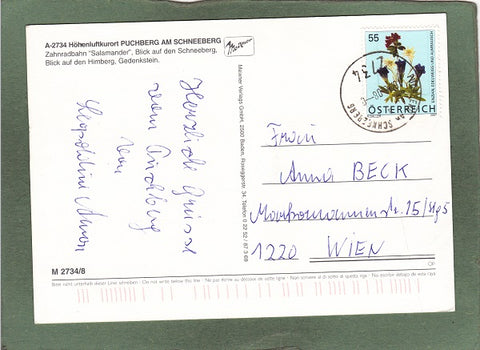 A-2734 Höhenluftkurort PUCHBERG AM SCHNEEBERG
Zahnradbahn "Salamander", Blick auf den Schneeberg,
Blick auf den Himberg, Gedenkstein.
Herzliche Grüsse
vom Puchberg
von
Leopoldine
M 2734/8
Bitte nicht unter diese Linie schreiben - Do not write below this line - Ne pas écrire au-dessous de cette ligne - Non scrivere al di sotto di questa linea - No escribir debajo de esta raya
Mariner Verlags GmbH, 2500 Baden, Roseggerstr. 34, Telefon 0 22 52 / 87 3 69
55
ÖSTERREICH
2734
SCHNEEBERG
Frau
Anna BECK
15/Stg 5
1220 WIEN